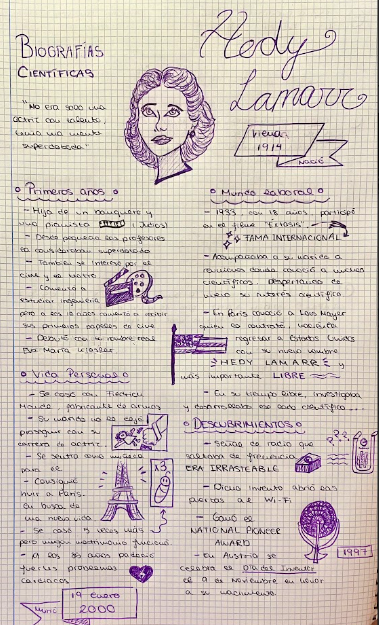 BIOGRAFÍAS
CIENTÍFICAS
Hedy
Lamarr
"No era solo una
actriz con talento,
tenía una mente
superdotada."
Viena,
1914
NACIÓ
Primeros años
- Hija de un banquero y
una pianista (Judíos)
- Desde pequeña los profesores
la consideraban superdotada
- También se interesó por el
cine y el teatro
- Comenzó a
estudiar ingeniería
pero a los 18 años comenzó a recibir
sus primeros papeles de cine
- Debutó con su nombre real
Eva María Kiesler
Vida Personal
- Se casó con Friedrich
Mandl, fabricante de armas
- Su marido no la dejó
proseguir con su
carrera de actriz.
- Se sentía una muñeca
para él
- Consiguió
huir a París.
En busca de
una nueva vida
x3
- Se casó 5 veces más
pero ningún matrimonio funcionó.
- A los 85 años padeció
fuertes problemas
cardiacos
Murió
19 Enero
2000
Mundo laboral
- 1933, con 18 años, participó
en el filme "Éxtasis"
TAMA INTERNACIONAL
- Acompañaba a su marido a
reuniones donde conoció a muchos
científicos, despertando de
nuevo su interés científico
- En París conoció a Louis Mayer
quien la contrató,
regresar a Estados Unidos
con su nuevo nombre
HEDY LAMARR y
más importante LIBRE
- En su tiempo libre, investigaba
y desarrollaba ese lado científico...
DESCUBRIMIENTOS
- Señal de radio que
saltaba de frecuencia
ERA IRRASTREABLE
???
- Dicho invento abrió las
puertas al Wi-Fi
- Ganó el
NATIONAL PIONEER
AWARD
1997
- En Austria se
celebra el Día del Inventor
el 9 de Noviembre en honor
a su nacimiento.